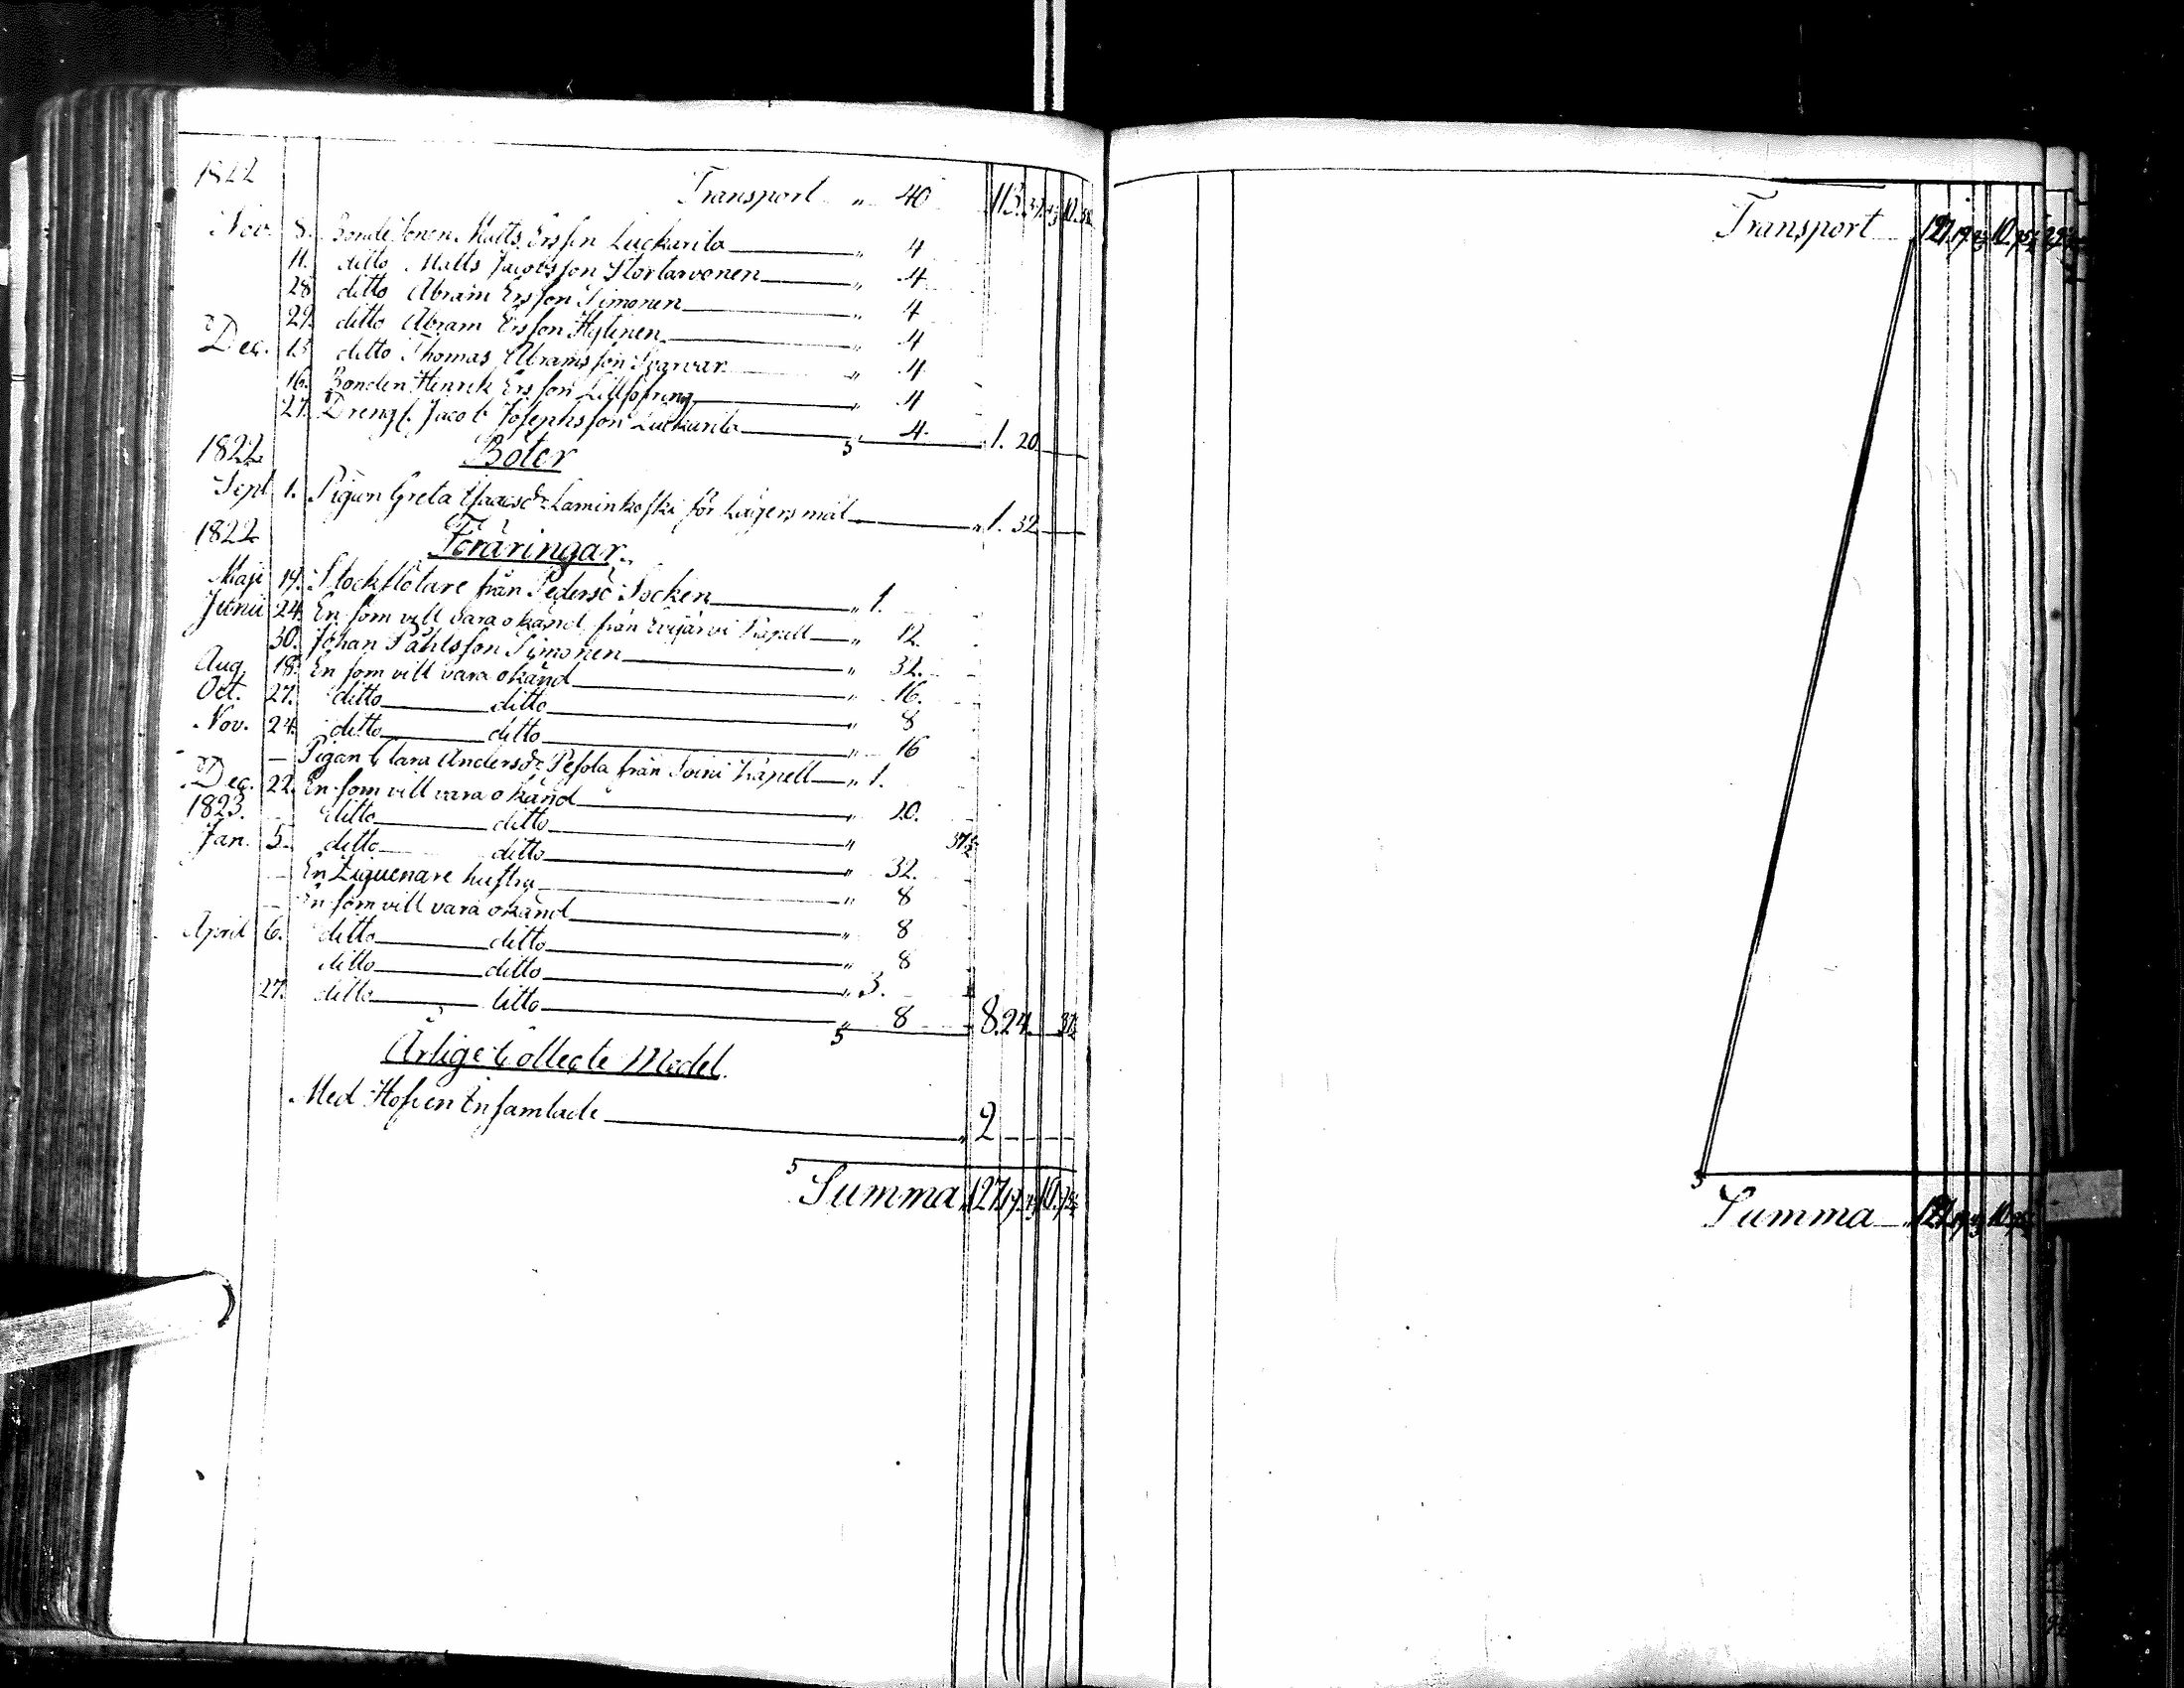 1822
Transport " 40 113.
Nov. 8. Bondesonen Matts Ersson Luckarila " 4
11. ditto Matts Jacobsson Stortarvonen " 4
28 ditto Abram Ersson Simonen " 4
29. ditto Abram Ersson Hytinen " 4
Dec. 13 ditto Thomas Abramsson Svarvar " 4
16. Bonden Henrik Ersson " 4
27. Drengs. Jacob Josephsson Luckarila " 4. 1. 20.
1822 Böter
Sept 1. Pigan Greta Isaacsdr Laminkoski för Lägersmål " 1. 32
1822 Föräringar
Maji 19. Stockflötare från Pedersö Socken " 1.
Junii 24. En som vill vara okänd från Evijärvi Kapell " 12.
30. Johan Påhlsson Simonen " 32.
Aug. 18. En som vill vara okänd " 16.
Oct. 27. ditto ditto " 8
Nov. 24. ditto ditto " 16
— Pigan Clara Andersdr Pesola från Soini Kapell " 1.
Dec. 22. En som vill vara okänd " 20.
1823. ditto ditto " 37½
Jan. 5. ditto ditto " 32.
— En Ziguenare hustru " 8
— En som vill vara okänd " 8
April 6. ditto ditto " 8
ditto ditto " 3.
27. ditto ditto " 8 8. 24. 37½
Årlige Collecte Medel.
Med Hofven Insamlade " 2
Summa 127. 19. 10.
Transport 127. 19. 10.
Summa 127. 19. 10.